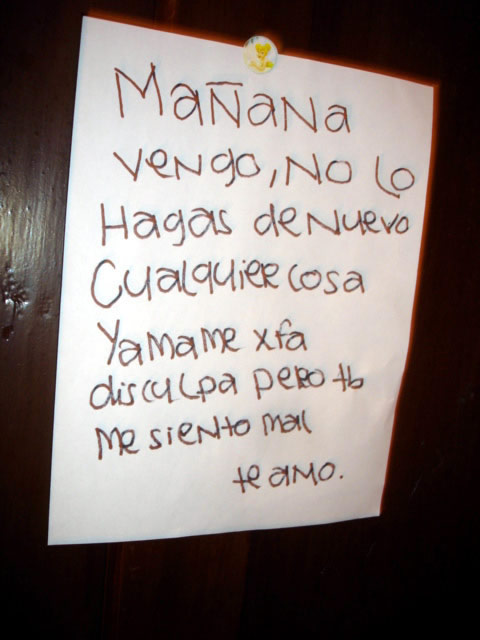 Mañana
vengo, no lo
Hagas denuevo
Cualquier cosa
Yamame xfa
disculpa pero tb
me siento mal
te amo.